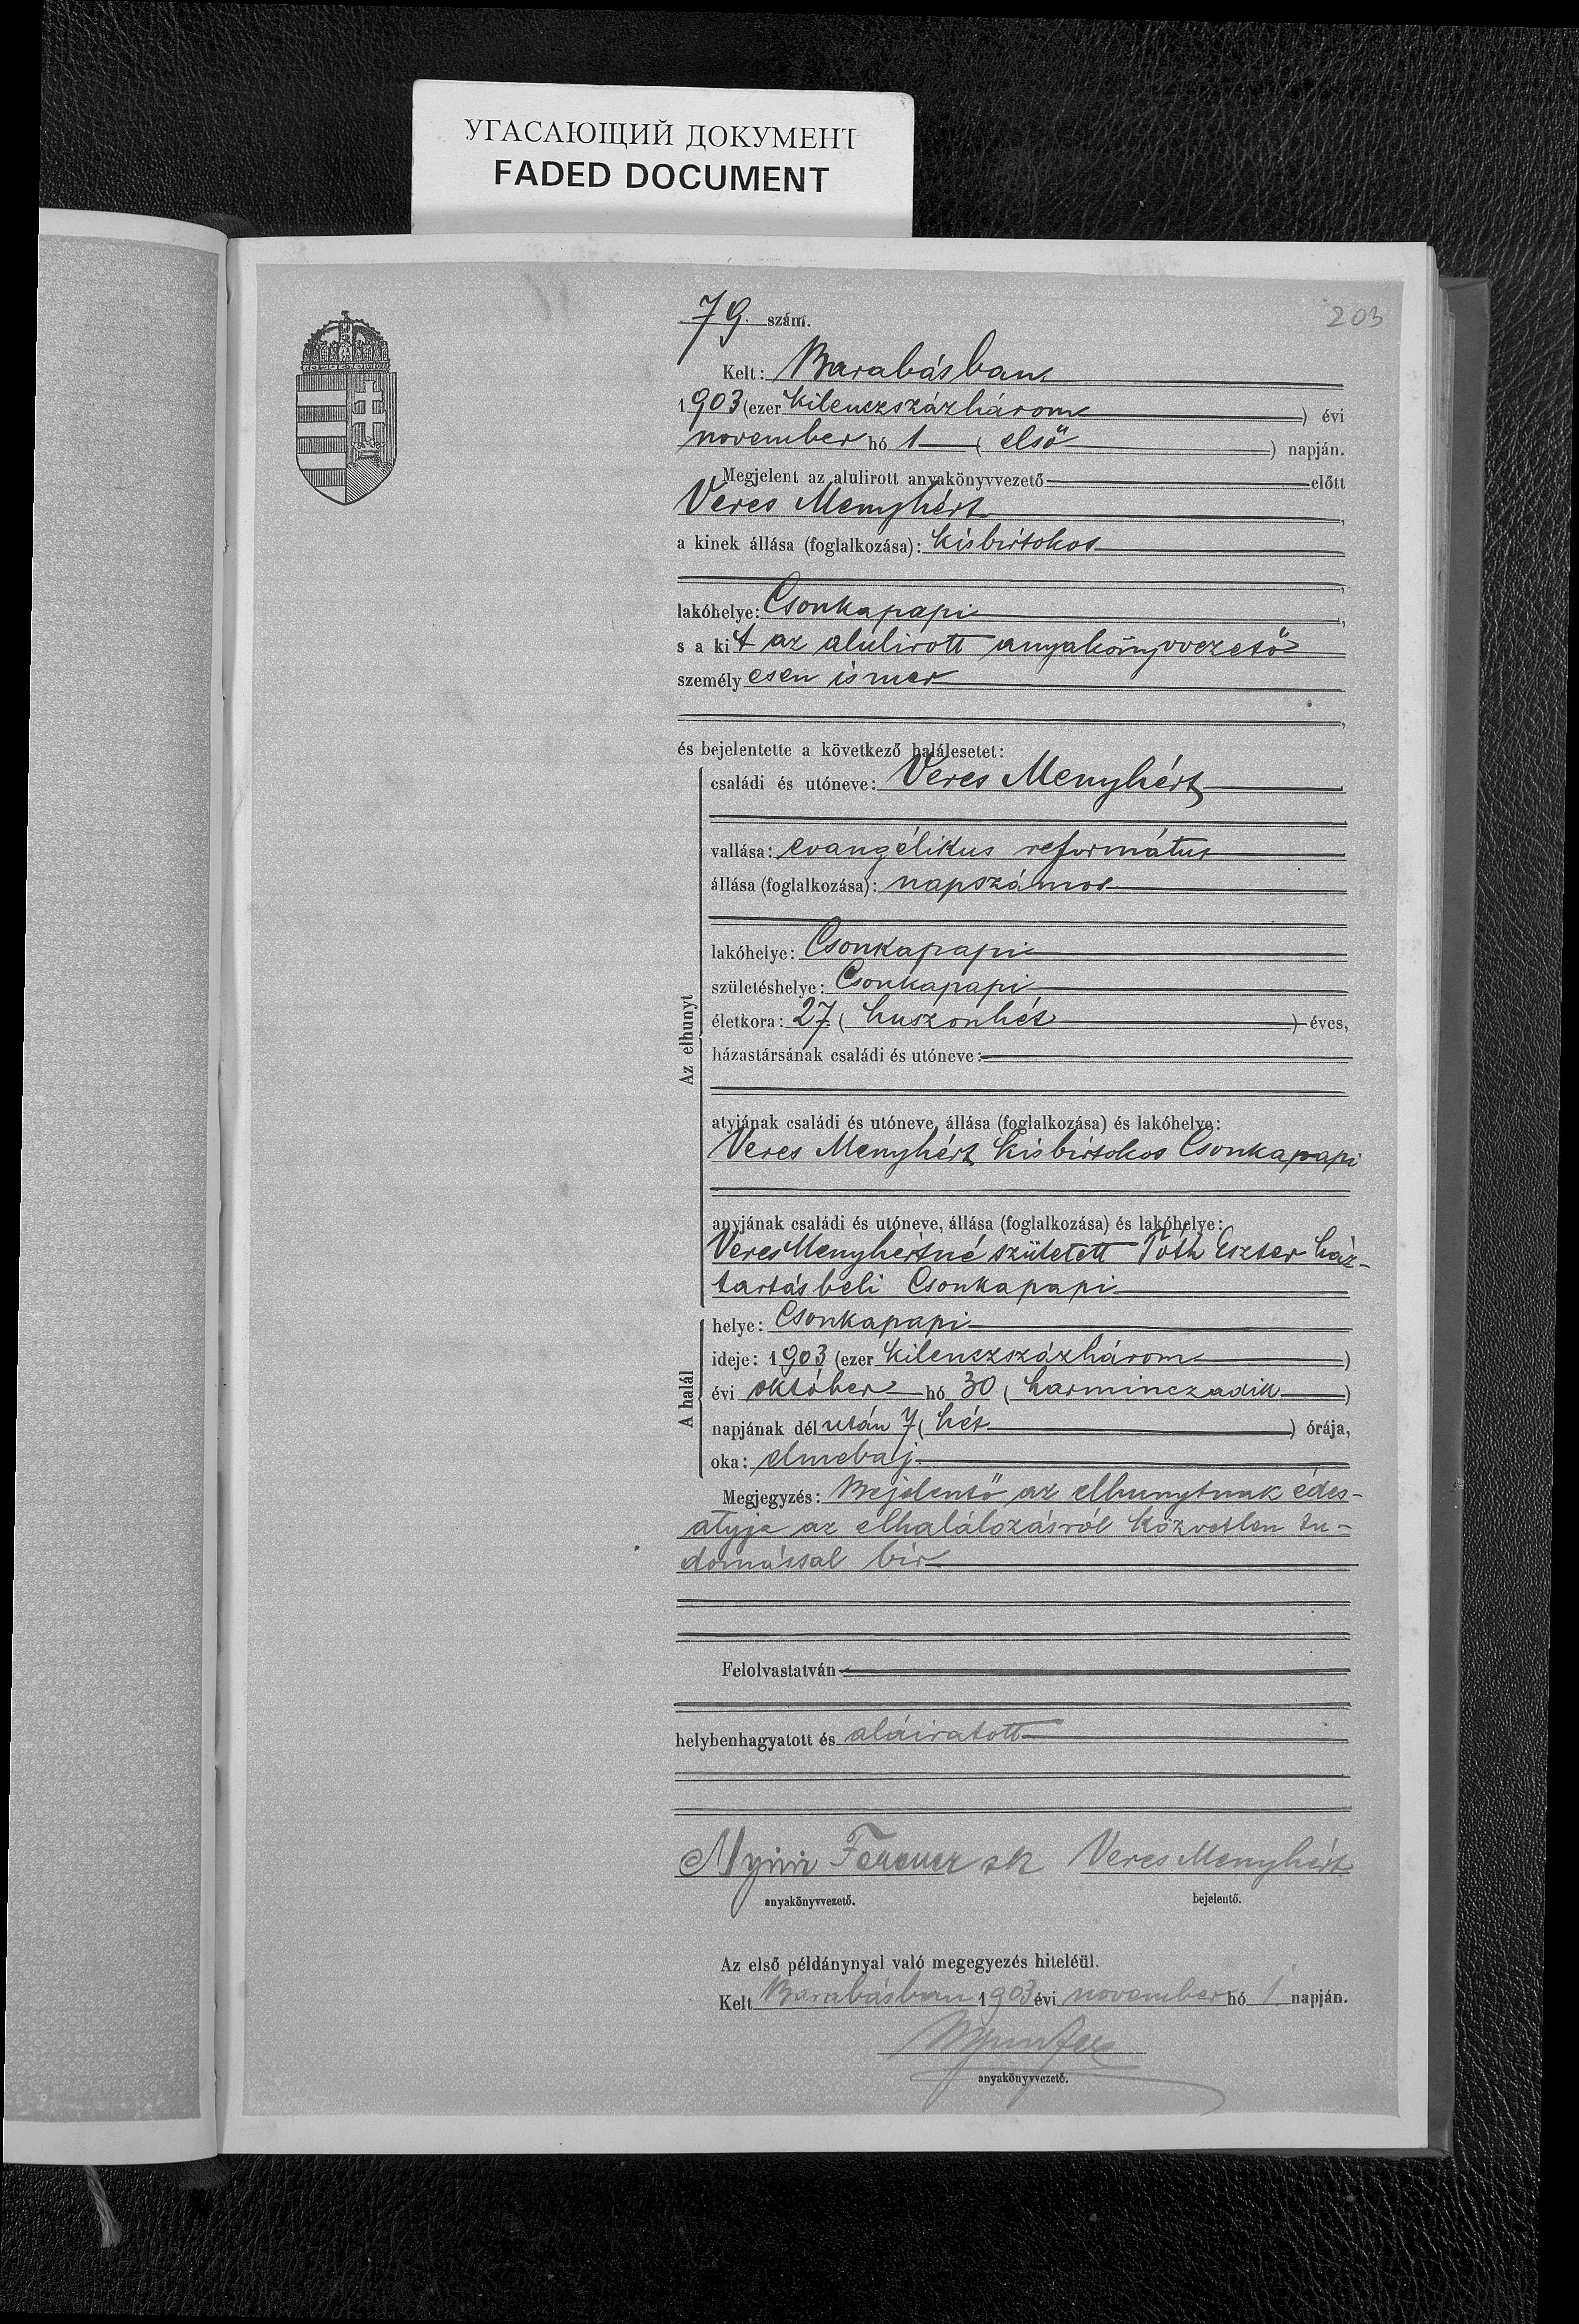 УГАСАЮЩИЙ ДОКУМЕНТ
FADED DOCUMENT
203
79. szám.
Kelt: Barabásban
1903 (ezer kilenczszázhárom) évi
november hó 1 (első) napján.
Megjelent az alulirott anyakönyvvezető előtt
Veres Menyhért,
a kinek állása (foglalkozása): kisbirtokos
lakóhelye: Csonkapapi,
s a kit az alulirott anyakönyvvezető
személyesen ismer
és bejelentette a következő halálesetet:
Az elhunyt
családi és utóneve: Veres Menyhért
vallása: evangélikus református
állása (foglalkozása): napszámos
lakóhelye: Csonkapapi
születéshelye: Csonkapapi
életkora: 27 (huszonhét) éves,
házastársának családi és utóneve:
atyjának családi és utóneve, állása (foglalkozása) és lakóhelye:
Veres Menyhért kisbirtokos Csonkapapi
anyjának családi és utóneve, állása (foglalkozása) és lakóhelye:
Veres Menyhértné született Tóth Eszter ház-
tartásbeli Csonkapapi
A halál
helye: Csonkapapi
ideje: 1903 (ezer kilenczszázhárom)
évi október hó 30 (harminczadik)
napjának délután 7 (hét) órája,
oka: elmebaj.
Megjegyzés: Bejelentő az elhunytnak édes-
atyja az elhalálozásról közvetlen tu-
domással bir
Felolvastatván
helybenhagyatott és aláiratott
Ferencz sk Veres Menyhért
anyakönyvvezető. bejelentő.
Az első példánynyal való megegyezés hiteléül.
Kelt Barabásban 1903 évi november hó 1 napján.
anyakönyvvezető.